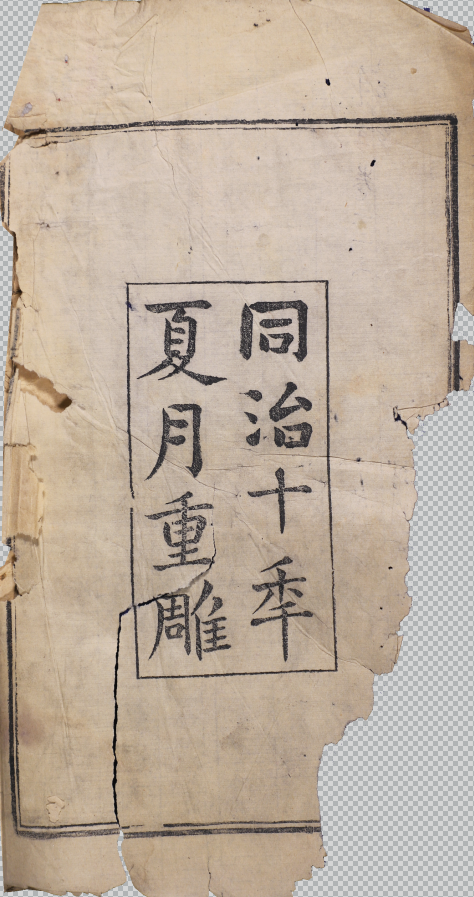 同治十秊
夏月重雕